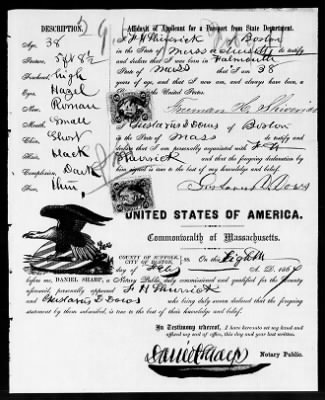 DESCRIPTION.
Affidavit of Applicant for a Passport from State Department.
I F H Shiverick of Boston
Age, 38
in the State of Massachusetts do testify
Stature, 5 ft 8 1/2
and declare that I was born in Falmouth
in the State of Mass that I am 38
Forehead, high
years of age, that I am, and always have been, a
Eyes, Hazel
the United States.
Nose, Roman
Mouth, Small
I Gustavus D Dows of Boston
Chin, Short
in the State of Mass do testify and
declare that I am personally acquainted with F H
Hair, Black
Shiverick and that the foregoing declaration by
Complexion, Dark
him signed is true to the best of my knowledge and belief.
Face, thin
Gustavus D. Dows
UNITED STATES OF AMERICA.
Commonwealth of Massachusetts.
COUNTY OF SUFFOLK,
CITY OF BOSTON, SS. On this Eighth
day of A. D. 186
before me, DANIEL SHARP, a Notary Public duly commissioned and qualified for the County
aforesaid, personally appeared F H Shiverick
and Gustavus D Dows who being duly sworn declared that the foregoing
statement by them subscribed, is true to the best of their knowledge and belief.
In Testimony whereof, I have hereunto set my hand and
affixed my seal of office, this day and year last written.
Daniel Sharp
Notary Public.